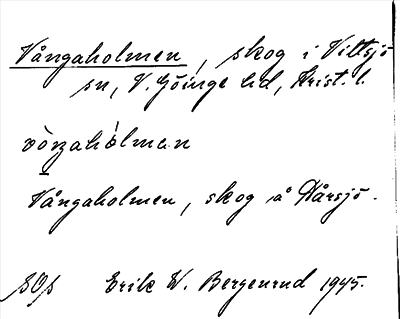 Vångaholmen, skog i Vittsjö
sn, V. Göinge hd, Krist. l.
vòŋahólman
Vångaholmen, skog å Hårsjö.
SOf Erik W. Bergenrud 1945.